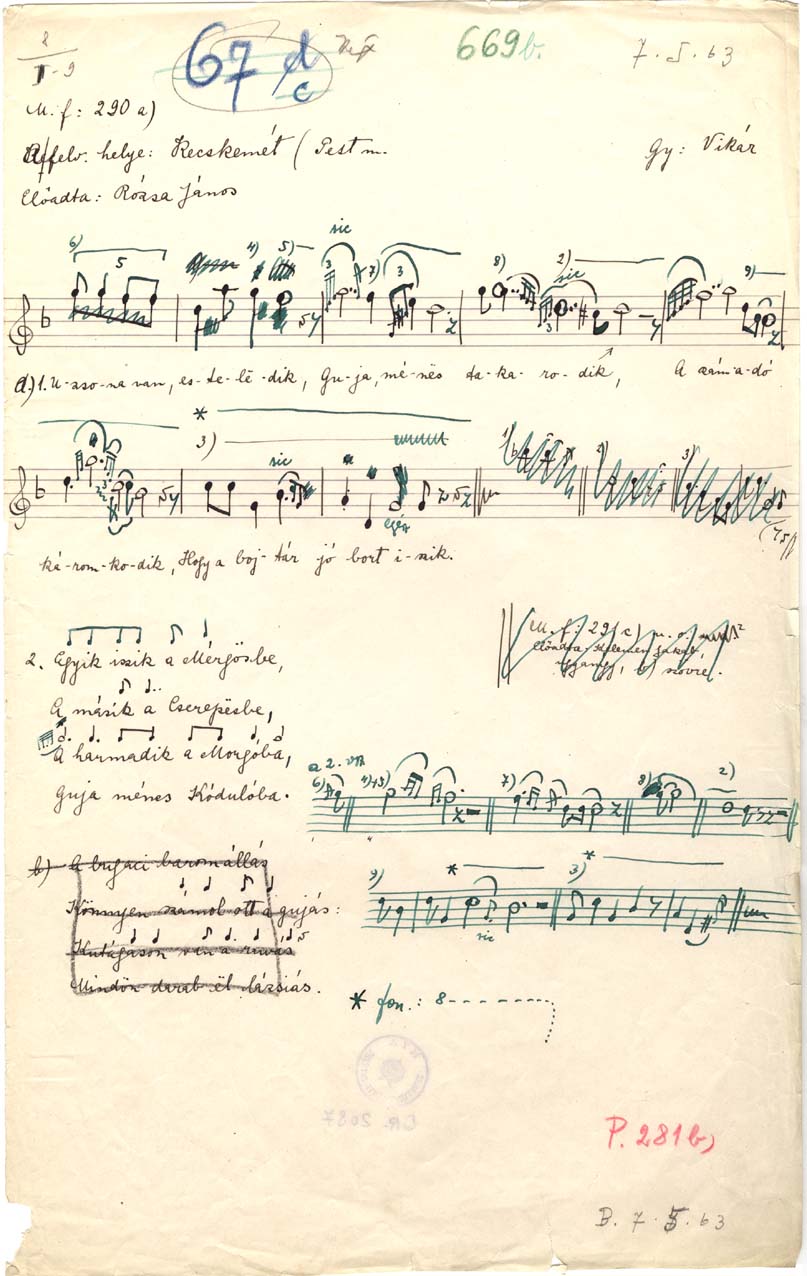 8
I-9
67 d
c
669b.
7.5.63
M.f: 290 a)
felv. helye: Kecskemét (Pest m.
Gy: Vikár
Előadta: Rózsa János
6) 5 4) 5) sic 3 7) 3 8) 2) sic 9)
a) 1. U-zso-na van, es-te-lë-dik, Gu-ja, mé-nës ta-ka-ro-dik, A szám-a-dó
* 3) sic
ká-rom-ko-dik, Hogy a boj-tár jó bort i-szik.
2. Egyik iszik a Mérgösbe,
A másik a Cserepësbe,
A harmadik a Morgóba,
guja ménes Kódulóba.
M.f: 291c)
a 2. vsz
6) 4)+5) 7) 8) 2)
b) A bugaci baromállás
Könnyen számol ott a gujás:
Kutágason van a rovás
Mindön darab ël
9) * 3) *
sic
* fon.: 8
P. 281b)
B. 7.5.63